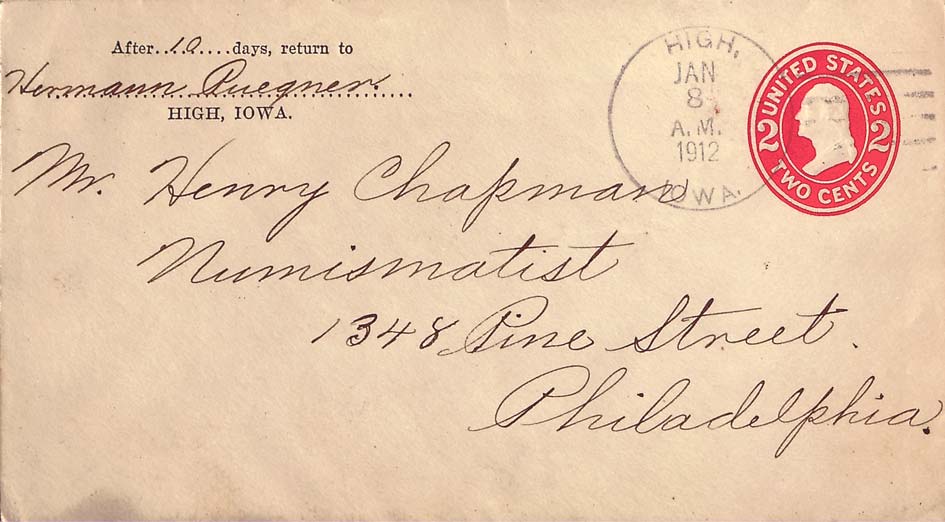 After..10....days, return to
Hermann Ruegner.
HIGH, IOWA.
HIGH,
JAN
8
A.M.
1912
IOWA.
UNITED STATES
2 2
TWO CENTS
Mr. Henry Chapman
Numismatist
1348 Pine Street.
Philadelphia.